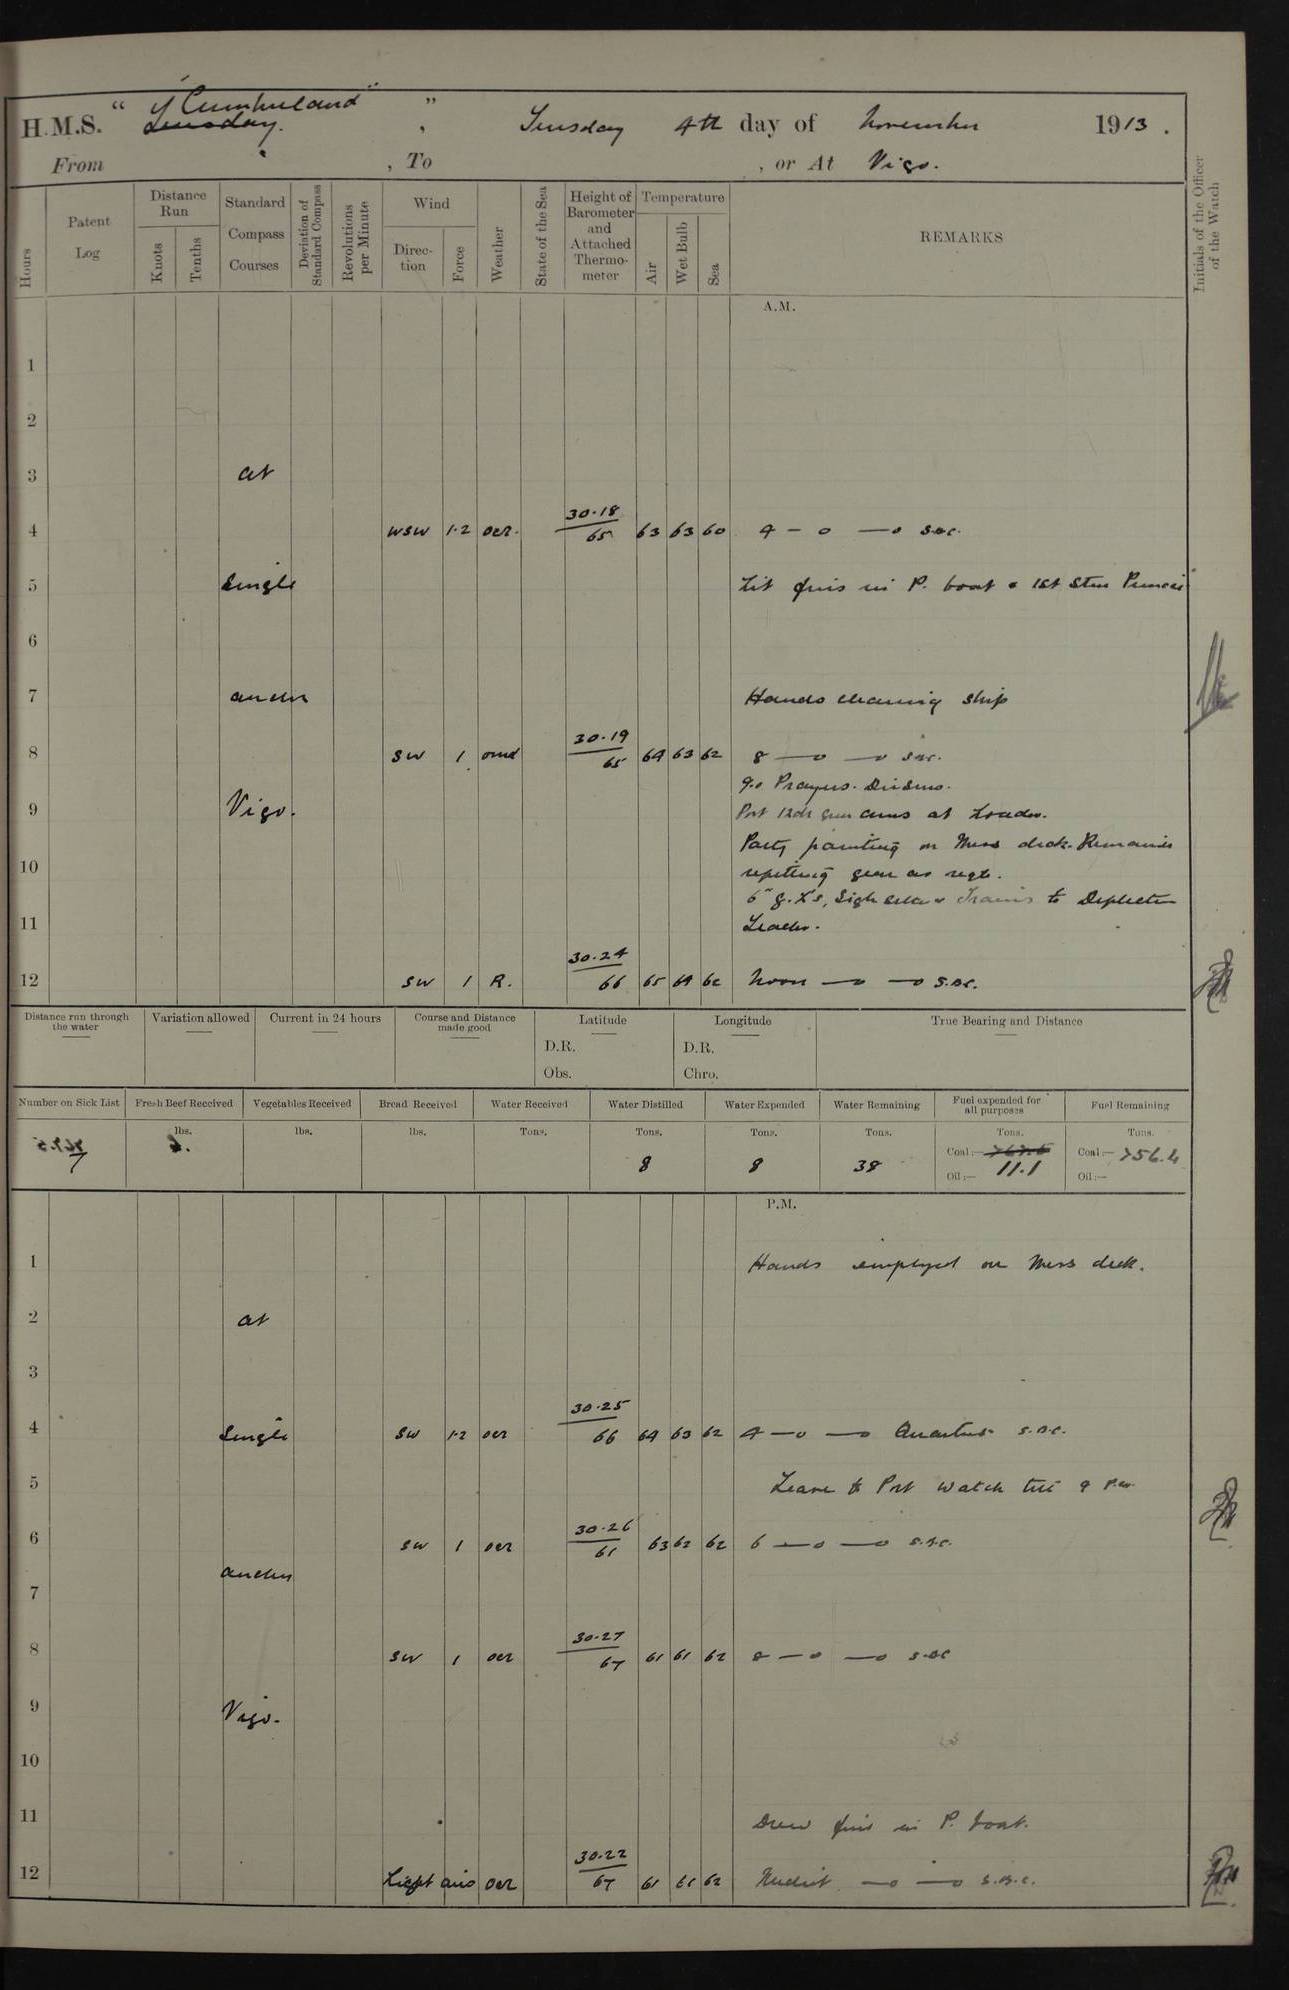 H.M.S. " "Cumberland" " , Tuesday 4th day of November 1913 .
Tuesday.
From , To , or At Vigo.
Hours
Patent Log
Distance Run
Knots
Tenths
Standard Compass Courses
Deviation of Standard Compass
Revolutions per Minute
Wind
Direction
Force
Weather
State of the Sea
Height of Barometer and Attached Thermometer
Temperature
Air
Wet Bulb
Sea
REMARKS
Initials of the Officer of the Watch
A.M.
1
2
3 at
4 WSW 1.2 ocr. 30.18 65 63 63 60 4 — o — o s.b.c.
5 Single Lit fires in P. boat & 1st Stm Pinnace
6
7 anchr Hands cleaning ship
8 SW 1 omd 30.19 65 64 63 62 8 — o — o s.b.c.
9.0 Prayers. Divisions.
9 Vigo. Port 12dr gun crews at Loader.
Party painting on Mess deck. Remainder
10 refitting gear as reqte.
6" g.l's, Sight setters & Trainers to Deflection
11 Teacher.
12 SW 1 R. 30.24 66 65 64 62 Noon — o — o s.b.c.
Distance run through the water
Variation allowed
Current in 24 hours
Course and Distance made good
Latitude
D.R.
Obs.
Longitude
D.R.
Chro.
True Bearing and Distance
Number on Sick List
Fresh Beef Received
Vegetables Received
Bread Received
Water Received
Water Distilled
Water Expended
Water Remaining
Fuel expended for all purposes
Fuel Remaining
lbs. lbs. lbs. Tons. Tons. Tons. Tons. Tons. Tons.
7 8 8 38 Coal:— 767.5 11.1 Coal:— 756.4
Oil:— Oil:—
P.M.
1 Hands employed on Mess deck.
2 at
3
4 Single SW 1.2 ocr 30.25 66 64 63 62 4 — o — o Quarters s.b.c.
5 Leave to Port Watch till 9 P.m.
6 SW 1 ocr 30.26 61 63 62 62 6 — o — o s.b.c.
anchr
7
8 SW 1 ocr 30.27 67 61 61 62 8 — o — o s.b.c
9 Vigo.
10
11 Drew fires in P. boat.
12 Light airs ocr 30.22 67 61 61 62 Midnt — o — o s.b.c.